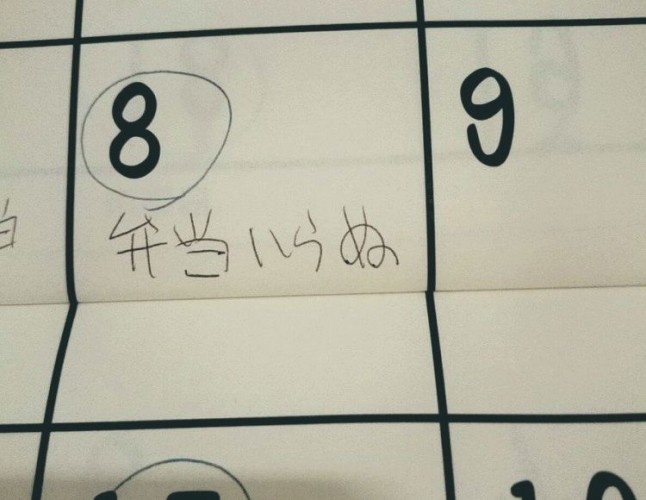 8 9
弁当いらぬ